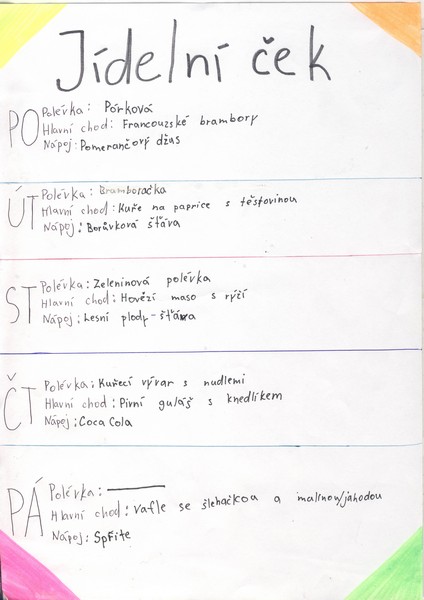 Jídelní ček
PO
Polévka: Pórková
Hlavní chod: Francouzské brambory
Nápoj: Pomerančový džus
ÚT
Polévka: Bramboračka
Hlavní chod: Kuře na paprice s těstovinou
Nápoj: Borůvková šťáva
ST
Polévka: Zeleninová polévka
Hlavní chod: Hovězí maso s rýží
Nápoj: Lesní plody-šťáva
ČT
Polévka: Kuřecí vývar s nudlemi
Hlavní chod: Pivní guláš s knedlíkem
Nápoj: Coca Cola
PÁ
Polévka:
Hlavní chod: Vafle se šlehačkou a malinou/jahodou
Nápoj: Spřite